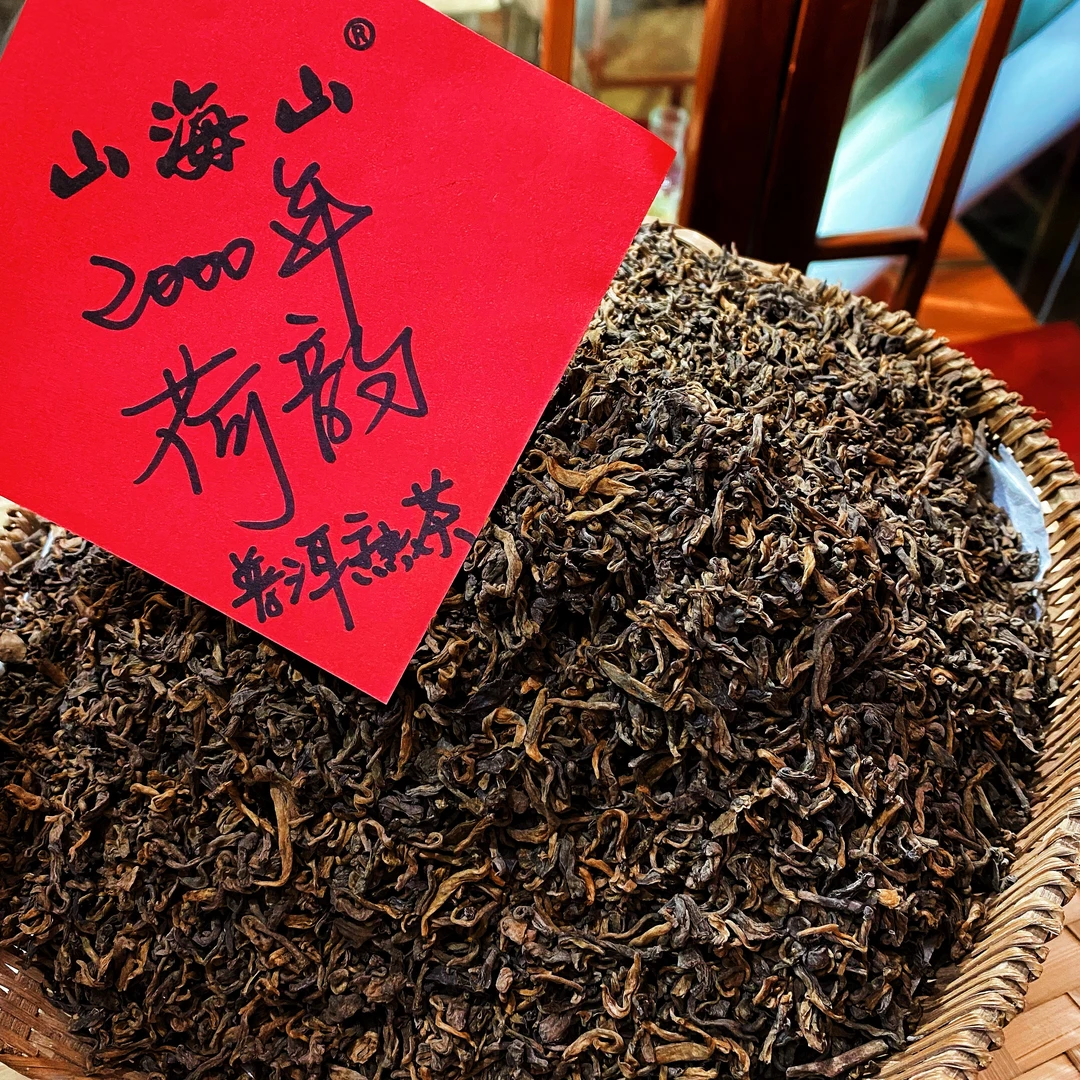 山海山®
2000年
荷韵
普洱熟茶